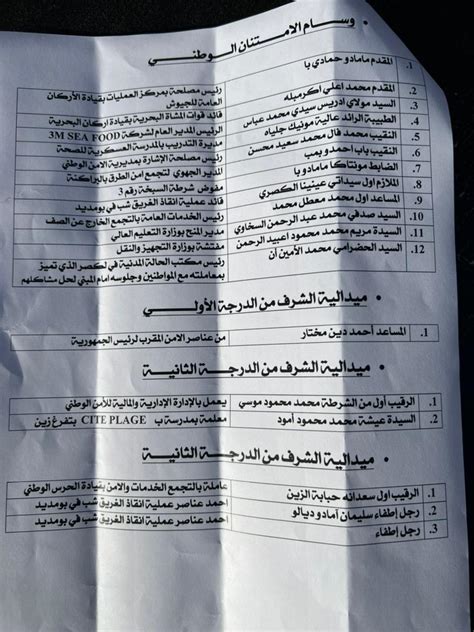 • وسام الامتنان الوطني
1. المقدم مامادو حمادي با
رئيس مصلحة بمركز العمليات بقيادة الأركان العامة للجيوش
2. المقدم محمد اعلي اكرمبله
قائد قوات المشاة البحرية بقيادة اركان البحرية
3. السيد مولاي ادريس سيدي محمد عباس
الرئيس المدير العام لشركة 3M SEA FOOD
4. الطبيبة الرائد عالية مونيك جلياه
مديرة التدريب بالمدرسة العسكرية للصحة
5. النقيب محمد فال محمد سعيد محسن
رئيس مصلحة الإشارة بمديرية الامن الوطني
6. النقيب باب احمدو بمب
المدير الجهوي لتجمع امن الطرق بالبراكنة
7. الضابط مونتاكا مامادو با
مفوض شرطة السبخة رقم 3
8. الملازم اول سيداتي عينينا الكصري
قائد عملية انقاذ الغريق شب في بومديد
9. المساعد اول محمد معطل محمد
رئيس الخدمات العامة بالتجمع الخارج عن الصف
10. السيد صدفي محمد عبد الرحمن السخاوي
مدير المنح بوزارة التعليم العالي
11. السيدة مريم محمد محمود اعبيد الرحمن
مفتشة بوزارة التجهيز والنقل
12. السيد الحضرامي محمد الأمين آن
رئيس مكتب الحالة المدنية في لكصر الذي تميز
بمعاملته مع المواطنين وجلوسه امام المبنى لحل مشاكلهم
• ميدالية الشرف من الدرجة الأولى
1. المساعد أحمد دين مختار
من عناصر الامن المقرب لرئيس الجمهورية
• ميدالية الشرف من الدرجة الثانية
1. الرقيب أول من الشرطة محمد محمود موسي
يعمل بالإدارة الإدارية والمالية للأمن الوطني
2. السيدة عيشة محمد محمود أمود
معلمة بمدرسة ب CITE PLAGE بتفرغ زين
• ميدالية الشرف من الدرجة الثانية
1. الرقيب اول سعدانه حبابة الزين
عاملة بالتجمع الخدمات والامن بقيادة الحرس الوطني
2. رجل إطفاء سليمان أمادو ديالو
احمد عناصر عملية انقاذ الغريق شب في بومديد
3. رجل إطفاء
احمد عناصر عملية انقاذ الغريق شب في بومديد